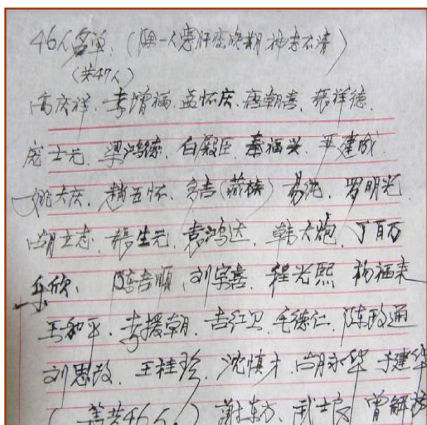 46人名单（除一人患肝癌晚期神志不清）
（共47人）
高庆祥、李增福、孟怀庆、唐朝喜、张祥德、
庞士元、梁鸿德、白殿臣、秦福兴、平建成
姚大庆、赵五怀、多吉（藏族）、易沌、罗明光、
胡立志、张生元、袁鸿达、韩大炮、丁百万
乐欣、陈吉顺、刘宇喜、程光熙、杨福来
王和平、李援朝、吉红卫、毛德仁、陈政通
刘思政、王桂珍、沈慎才、胡永华、于建华
（共46人）谢东方、武士良、曾解放